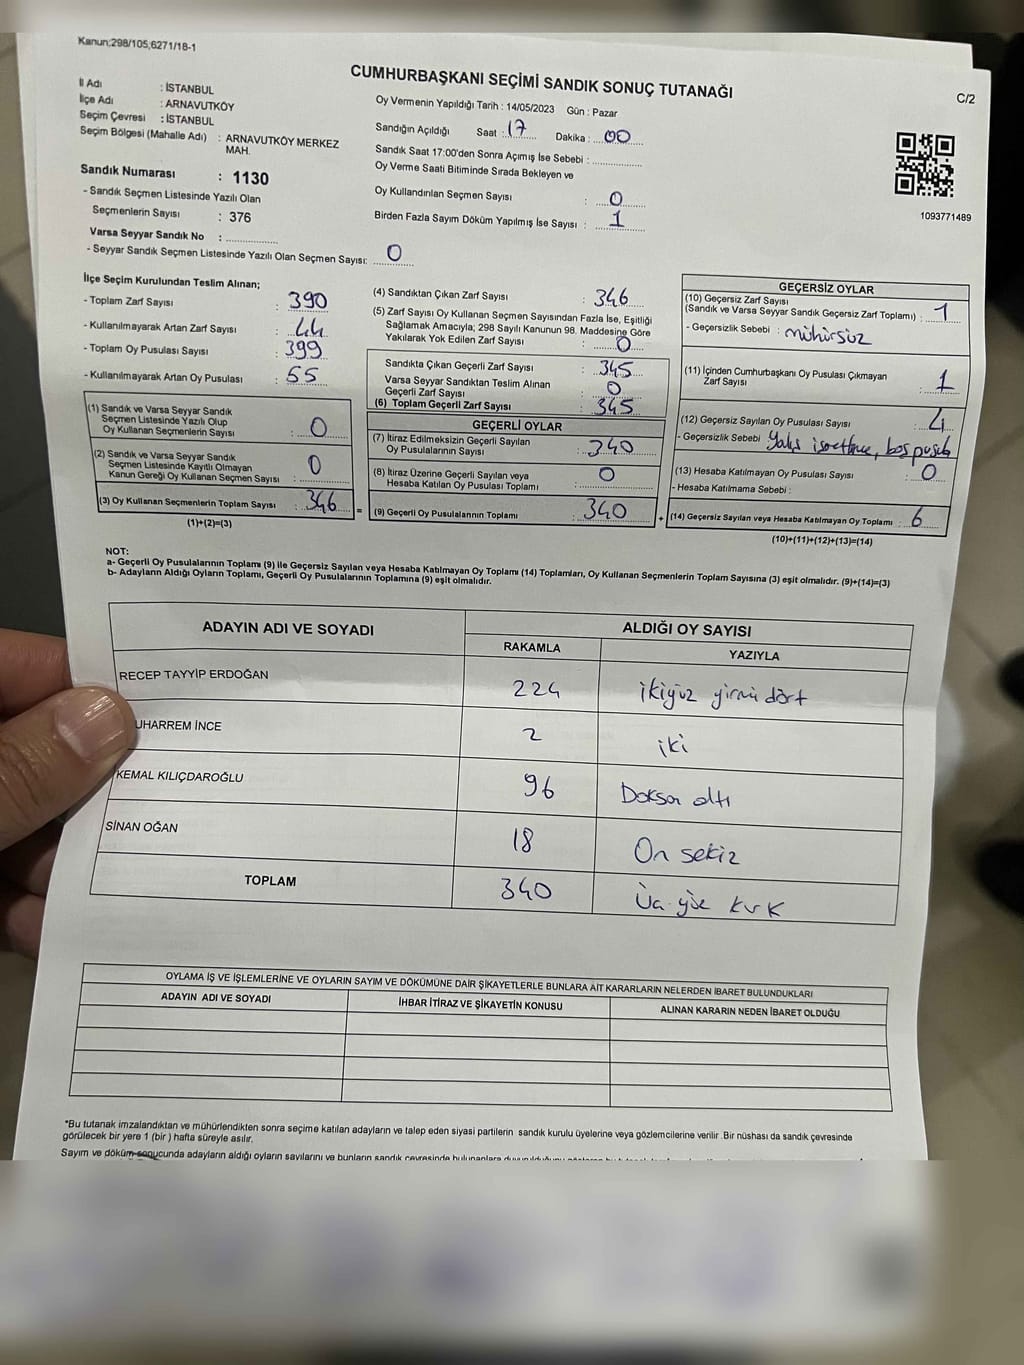 Kanun;298/105;6271/18-1
CUMHURBAŞKANI SEÇİMİ SANDIK SONUÇ TUTANAĞI
C/2
İl Adı : İSTANBUL
İlçe Adı : ARNAVUTKÖY
Seçim Çevresi : İSTANBUL
Seçim Bölgesi (Mahalle Adı) : ARNAVUTKÖY MERKEZ
MAH.
Sandık Numarası : 1130
- Sandık Seçmen Listesinde Yazılı Olan
Seçmenlerin Sayısı : 376
Varsa Seyyar Sandık No :
- Seyyar Sandık Seçmen Listesinde Yazılı Olan Seçmen Sayısı: 0
Oy Vermenin Yapıldığı Tarih : 14/05/2023 Gün : Pazar
Sandığın Açıldığı Saat : 17 Dakika : 00
Sandık Saat 17:00'den Sonra Açımış İse Sebebi :
Oy Verme Saati Bitiminde Sırada Bekleyen ve
Oy Kullandırılan Seçmen Sayısı : 0
Birden Fazla Sayım Döküm Yapılmış İse Sayısı : 1
1093771489
İlçe Seçim Kurulundan Teslim Alınan;
- Toplam Zarf Sayısı : 390
- Kullanılmayarak Artan Zarf Sayısı : 44
- Toplam Oy Pusulası Sayısı : 399
- Kullanılmayarak Artan Oy Pusulası : 55
(1) Sandık ve Varsa Seyyar Sandık
Seçmen Listesinde Yazılı Olup
Oy Kullanan Seçmenlerin Sayısı : 0
(2) Sandık ve Varsa Seyyar Sandık
Seçmen Listesinde Kayıtlı Olmayan
Kanun Gereği Oy Kullanan Seçmen Sayısı : 0
(3) Oy Kullanan Seçmenlerin Toplam Sayısı : 346
(1)+(2)=(3)
(4) Sandıktan Çıkan Zarf Sayısı : 346
(5) Zarf Sayısı Oy Kullanan Seçmen Sayısından Fazla İse, Eşitliği
Sağlamak Amacıyla; 298 Sayılı Kanunun 98. Maddesine Göre
Yakılarak Yok Edilen Zarf Sayısı : 0
Sandıkta Çıkan Geçerli Zarf Sayısı : 345
Varsa Seyyar Sandıktan Teslim Alınan
Geçerli Zarf Sayısı : 0
(6) Toplam Geçerli Zarf Sayısı : 345
GEÇERLİ OYLAR
(7) İtiraz Edilmeksizin Geçerli Sayılan
Oy Pusulalarının Sayısı : 340
(8) İtiraz Üzerine Geçerli Sayılan veya
Hesaba Katılan Oy Pusulası Toplamı : 0
= (9) Geçerli Oy Pusulalarının Toplamı : 340
GEÇERSİZ OYLAR
(10) Geçersiz Zarf Sayısı
(Sandık ve Varsa Seyyar Sandık Geçersiz Zarf Toplamı) : 1
- Geçersizlik Sebebi : mühürsüz
(11) İçinden Cumhurbaşkanı Oy Pusulası Çıkmayan
Zarf Sayısı : 1
(12) Geçersiz Sayılan Oy Pusulası Sayısı : 4
- Geçersizlik Sebebi boş pusula
(13) Hesaba Katılmayan Oy Pusulası Sayısı : 0
- Hesaba Katılmama Sebebi :
+ (14) Geçersiz Sayılan veya Hesaba Katılmayan Oy Toplamı : 6
(10)+(11)+(12)+(13)=(14)
NOT:
a- Geçerli Oy Pusulalarının Toplamı (9) ile Geçersiz Sayılan veya Hesaba Katılmayan Oy Toplamı (14) Toplamları, Oy Kullanan Seçmenlerin Toplam Sayısına (3) eşit olmalıdır. (9)+(14)=(3)
b- Adayların Aldığı Oyların Toplamı, Geçerli Oy Pusulalarının Toplamına (9) eşit olmalıdır.
ADAYIN ADI VE SOYADI ALDIĞI OY SAYISI
RAKAMLA YAZIYLA
RECEP TAYYİP ERDOĞAN 224 ikiyüz yirmi dört
UHARREM İNCE 2 iki
KEMAL KILIÇDAROĞLU 96 Doksan altı
SİNAN OĞAN 18 On sekiz
TOPLAM 340 Üç yüz kırk
OYLAMA İŞ VE İŞLEMLERİNE VE OYLARIN SAYIM VE DÖKÜMÜNE DAİR ŞİKAYETLERLE BUNLARA AİT KARARLARIN NELERDEN İBARET BULUNDUKLARI
ADAYIN ADI VE SOYADI İHBAR İTİRAZ VE ŞİKAYETİN KONUSU ALINAN KARARIN NEDEN İBARET OLDUĞU
"Bu tutanak imzalandıktan ve mühürlendikten sonra seçime katılan adayların ve talep eden siyasi partilerin sandık kurulu üyelerine veya gözlemcilerine verilir .Bir nüshası da sandık çevresinde
görülecek bir yere 1 (bir ) hafta süreyle asılır.
Sayım ve döküm sonucunda adayların aldığı oyların sayılarını ve bunların sandık çevresinde bulunanlara